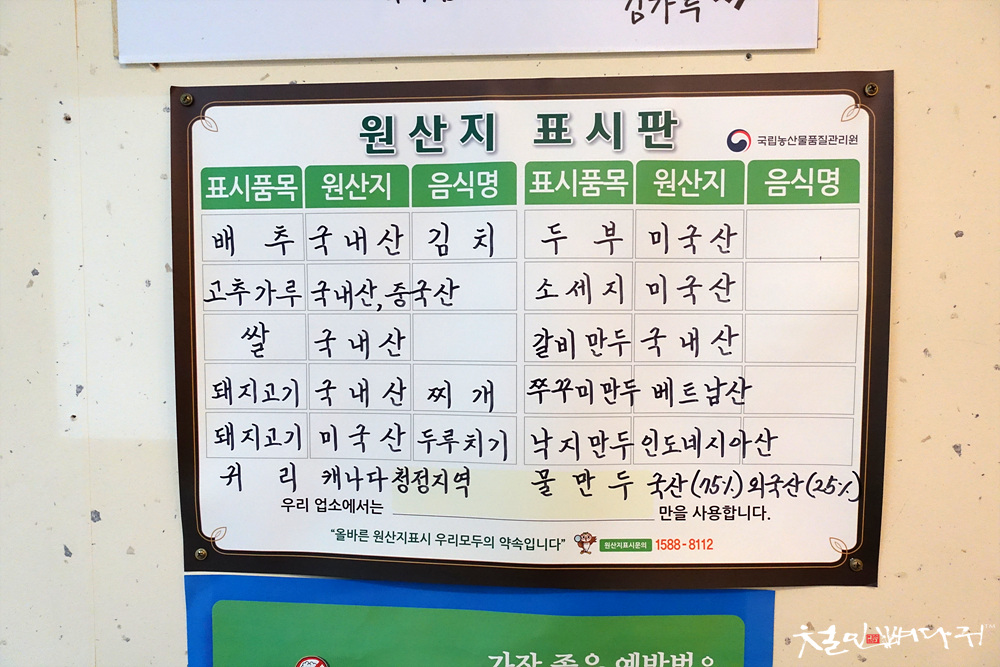 원산지 표시판
국립농산물품질관리원
표시품목 원산지 음식명 표시품목 원산지 음식명
배추 국내산 김치 두부 미국산
고추가루 국내산,중국산 소세지 미국산
쌀 국내산 갈비만두 국내산
돼지고기 국내산 찌개 쭈꾸미만두 베트남산
돼지고기 미국산 두루치기 낙지만두 인도네시아산
귀리 캐나다청정지역 물만두 국산(75%) 외국산(25%)
우리 업소에서는 만을 사용합니다.
"올바른 원산지표시 우리모두의 약속입니다" 원산지표시문의 1588-8112
가장 좋은 예방법은